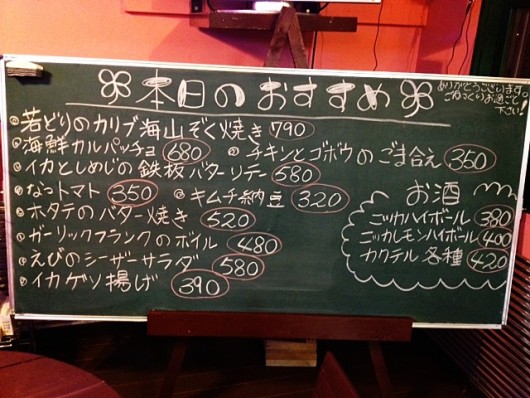 本日のおすすめ
ありがとうございます。
ごゆっくりお過ごし
下さい!
若どりのカリブ海山ぞく焼き 790
海鮮カルパッチョ 680
チキンとゴボウのごま合え 350
イカとしめじの鉄板バターソテー 580
なつトマト 350
キムチ納豆 320
ホタテのバター焼き 520
ガーリックフランクのボイル 480
えびのシーザーサラダ 580
イカゲソ揚げ 390
お酒
ニッカハイボール 380
ニッカレモンハイボール 400
カクテル各種 420